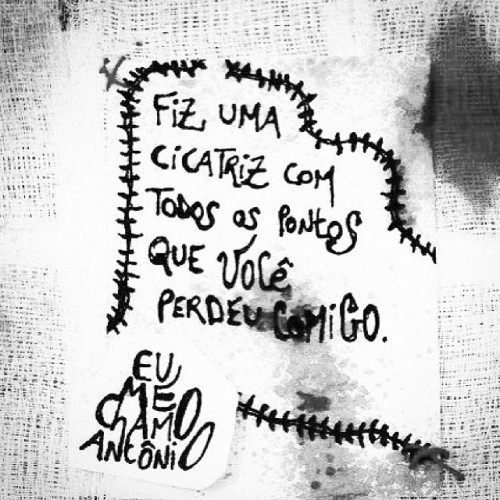 FIZ UMA
CICATRIZ COM
TODOS OS PONTOS
QUE VOCÊ
PERDEU COMIGO.
EU
ME
CHAMO
ANTÔNIO